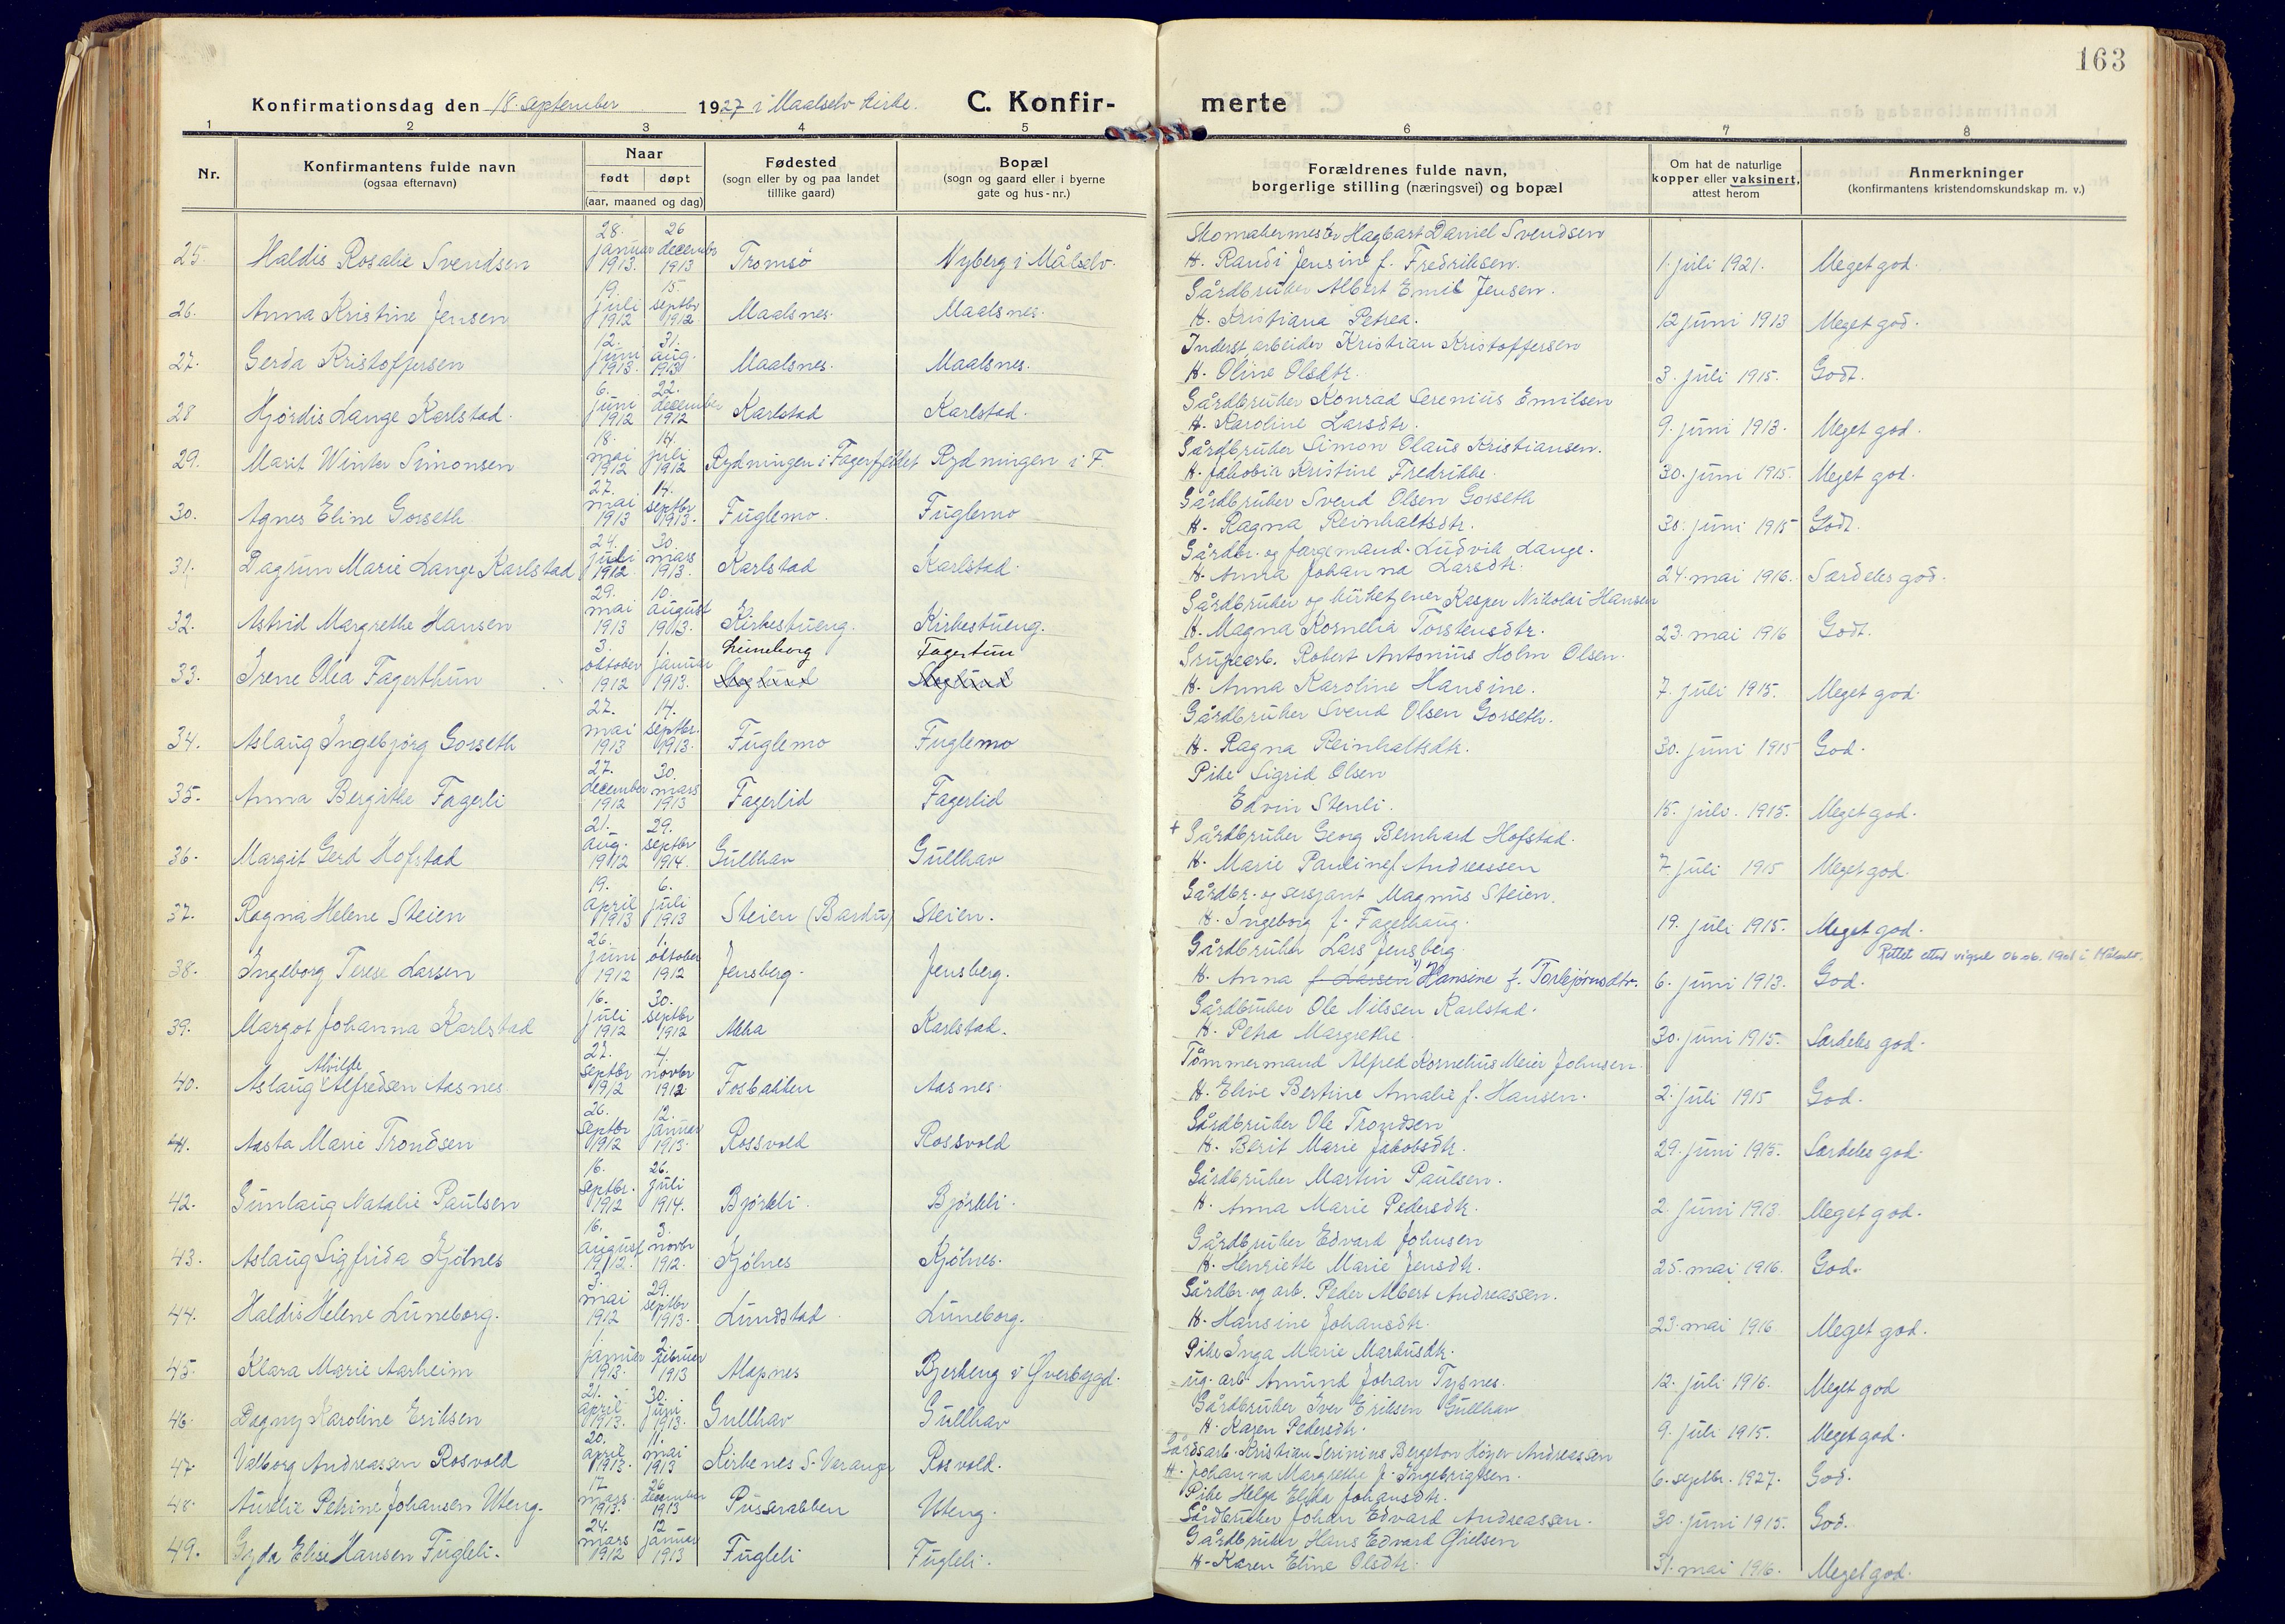 163
Konfirmationsdag den 18. september 1927 i Maalselv kirke. C. Konfir- merte
1 2 3 4 5 6 7 8
Nr.
Konfirmantens fulde navn
(ogsaa efternavn)
Naar
født døpt
(aar, maaned og dag)
Fødested
(sogn eller by og paa landet
tillike gaard)
Bopæl
(sogn og gaard eller i byerne
gate og hus-nr.)
Forældrenes fulde navn,
borgerlige stilling (næringsvei) og bopæl
Om hat de naturlige
kopper eller vaksinert,
attest herom
Anmerkninger
(konfirmantens kristendomskundskap m. v.)
28. 26 Skomakermester Hagbart Daniel Svendsen
25. Haldis Rosalie Svendsen januar december Tromsø Nyberg i Målselv. H. Randi Jensine f. Fredriksen. 1. juli 1921. Meget god.
1913. 1913
19. 15. Gårdbruker Albert Emil Jensen.
26. Anna Kristine Jensen juli septbr Maalsnes. Maalsnes. H. Kristiana Petrea. 12 juni 1913 Meget god.
1912 1912
12. 31. Inderst, arbeider Kristian Kristoffersen
27. Gerda Kristoffersen juni aug. Maalsnes. Maalsnes. H. Oline Olsdtr. 3. juli 1915. Godt.
1913. 1913
6. 22. Gårdbruker Konrad Serenius Emilsen
28 Hjørdis Lange Karlstad. juni december Karlstad Karlstad. H. Karoline Larsdtr. 9. juni 1913. Meget god.
1912 1912
18. 14. Gårdbruker Simon Olaus Kristiansen.
29. Marit Winter Simonsen mai juli Rydningen i Fagerfjellet Rydningen i F. H. Jakobia Kristine Fredrikke. 30. juni 1915. Meget god.
1912 1912
27. 14. Gårdbruker Svend Olsen Gorseth
30. Agnes Eline Gorseth mai septbr Fuglemo. Fuglemo H. Ragna Reinholtsdtr. 30. juni 1915 Godt.
1913 1913.
24. 30. Gårdbr. og færgemand. Ludvik Lange.
31. Dagrun Marie Lange Karlstad juli mars Karlstad Karlstad. H. Anna Johanna Larsdtr. 24. mai 1916. Særdeles god.
1912. 1913.
29. 10. Gårdbruker og kirketjener Kasper Nikolai Hansen
32. Astrid Margrethe Hansen mai august Kirkestueng. Kirkestueng. H. Magna Kornelia Torstensdtr. 23. mai 1916 Godt.
1913 1913.
3. 1. Luneborg Fagertun Grubearb. Robert Antonius Holm Olsen.
33. Irene Olea Fagerthun oktober januar Skoglund Skoglund H. Anna Karoline Hansine. 7. juli 1915. Meget god.
1912 1913.
27. 14. Gårdbruker Svend Olsen Gorseth.
34. Aslaug Ingebjørg Gorseth mai septbr. Fuglemo Fuglemo H. Ragna Reinholtsdtr. 30. juni 1915 God.
1913 1913.
27. 30. Pike Sigrid Olsen
35. Anna Bergithe Fagerli december mars Fagerlid Fagerlid Edvin Stenli. 15. juli. 1915. Meget god.
1912 1913
21. 29. + Gårdbruker Georg Bernhard Hofstad.
36. Margit Gerd Hofstad aug. septbr Gullhav Gullhav H. Marie Pauline f. Andreassen 7. juli 1915 Meget god.
1912 1914.
19. 6. Gårdbr. og sersjant Magnus Steien.
37. Ragna Helene Steien april juli Steien (Bardu) Steien. H. Ingeborg f. Fagerhaug. 19. juli 1915. Meget god.
1913 1913
26. 1. Gårdbruker Lars Jensberg
38. Ingeborg Terese Larsen juni oktober Jensberg. Jensberg. H. Anna f. Larsen Hansine f. Torbjørnsdtr. 6. juni 1913. God.
1912 1912
16. 30. Gårdbruker Ole Nilssen Karlstad.
39. Margot Johanna Karlstad juli septbr Moha Karlstad. H. Petra Margrethe. 30. juni 1915. Særdeles god.
1912 1912
27. 4. Tømmermand Alfred Kornelius Meier Johnsen.
Alvilde
40. Aslaug Alfredsen Aasnes septbr novbr Fosbakken Aasnes. H. Eline Bertine Amalie f. Hansen. 2. juli 1915 God.
1912 1912
26. 12. Gårdbruker Ole Trondsen
41. Aasta Marie Trondsen septbr januar Rossvold Rossvold H. Berit Marie Jakobsdtr. 29. juni 1915. Særdeles god.
1912 1913.
16. 26. Gårdbruker Martin Paulsen.
42. Gunlaug Natalie Paulsen septbr. juli Bjørkli. Bjørkli. H. Anna Marie Pedersdtr. 2. juni 1913. Meget god.
1912 1914.
16. 3. Gårdbruker Edvard Johnsen
43. Aslaug Sigfrida Kjølnes august novbr Kjølnes Kjølnes. H. Henriette Marie Jensdtr. 25. mai 1916. God.
1912. 1912.
3. 29. Gårdbr. og arb. Peder Albert Andreassen.
44. Haldis Helene Luneborg. mai septbr Lundstad Luneborg. H. Hansine Johansdtr. 23. mai 1916 Meget god.
1912 1913.
1. 2. Pike Inga Marie Markusdtr.
45. Klara Marie Aarheim januar februar Alapnes Bjerkeng i Øverbygd. ug. arb. Amund Johan Tysnes. 12. juli 1916. Meget god
1913. 1913
21. 30. Gårdbruker Iver Eriksen Gullhav
46. Dagny Karoline Eriksen april juni Gullhav Gullhav H. Karen Pedersdtr. 9. juli 1915. Meget god.
1913. 1913.
20. 11. Gårdsarb. Kristian Serinius Bergeton Høyer Andreassen
47. Valborg Andreassen Rosvold april mai Kirkenes S. Varanger Rosvold. H. Johanna Margrethe f. Ingebrigtsen. 6. septbr. 1927. God.
1913. 1913
17. 26 Pike Helga Elida Johansdtr.
48. Aurelie Petrine Johansen Uteng. mars december Pussrabben Uteng. Gårdbruker Johan Edvard Andreassen. 30. juni 1915. God.
1913. 1913
24. 12 Gårdbruker Hans Edvard Olelsen
49. Gyda Elise Hansen Fugleli. mars januar Fugleli Fugleli. H. Karen Eline Olsdtr. 31. mai 1916. Meget god.
1912 1913